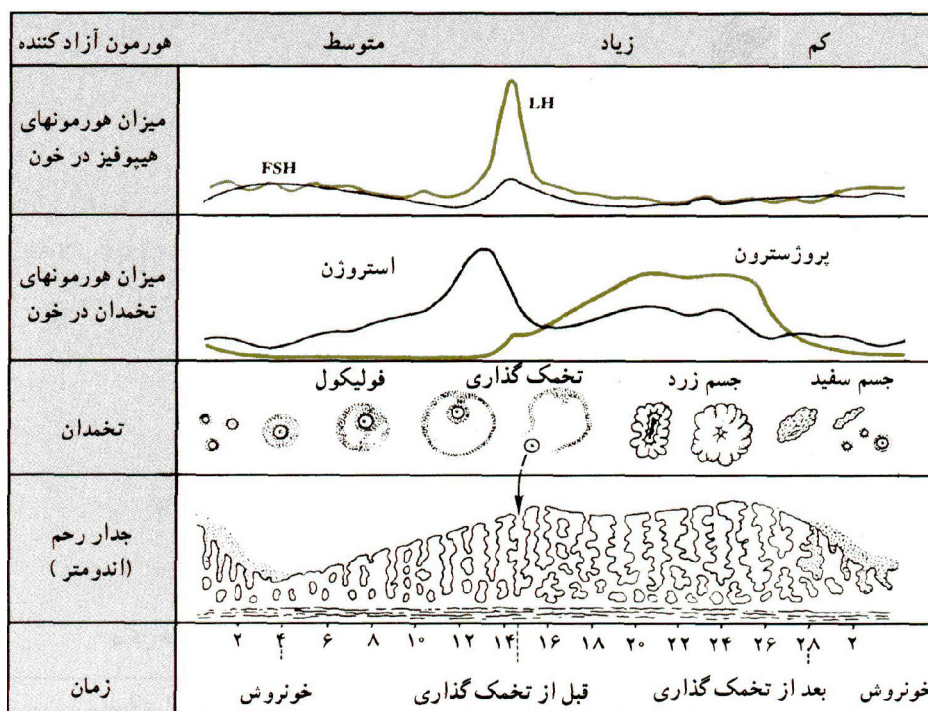 هورمون آزادکننده متوسط زیاد کم
میزان هورمونهای
هیپوفیز در خون
LH
FSH
میزان هورمونهای
تخمدان در خون
استروژن
پروژسترون
تخمدان
فولیکول تخمک گذاری جسم زرد جسم سفید
جدار رحم
(اندومتر)
۲ ۴ ۶ ۸ ۱۰ ۱۲ ۱۴ ۱۶ ۱۸ ۲۰ ۲۲ ۲۴ ۲۶ ۲۸ ۲
زمان
خونروش قبل از تخمک گذاری بعد از تخمک گذاری خونروش